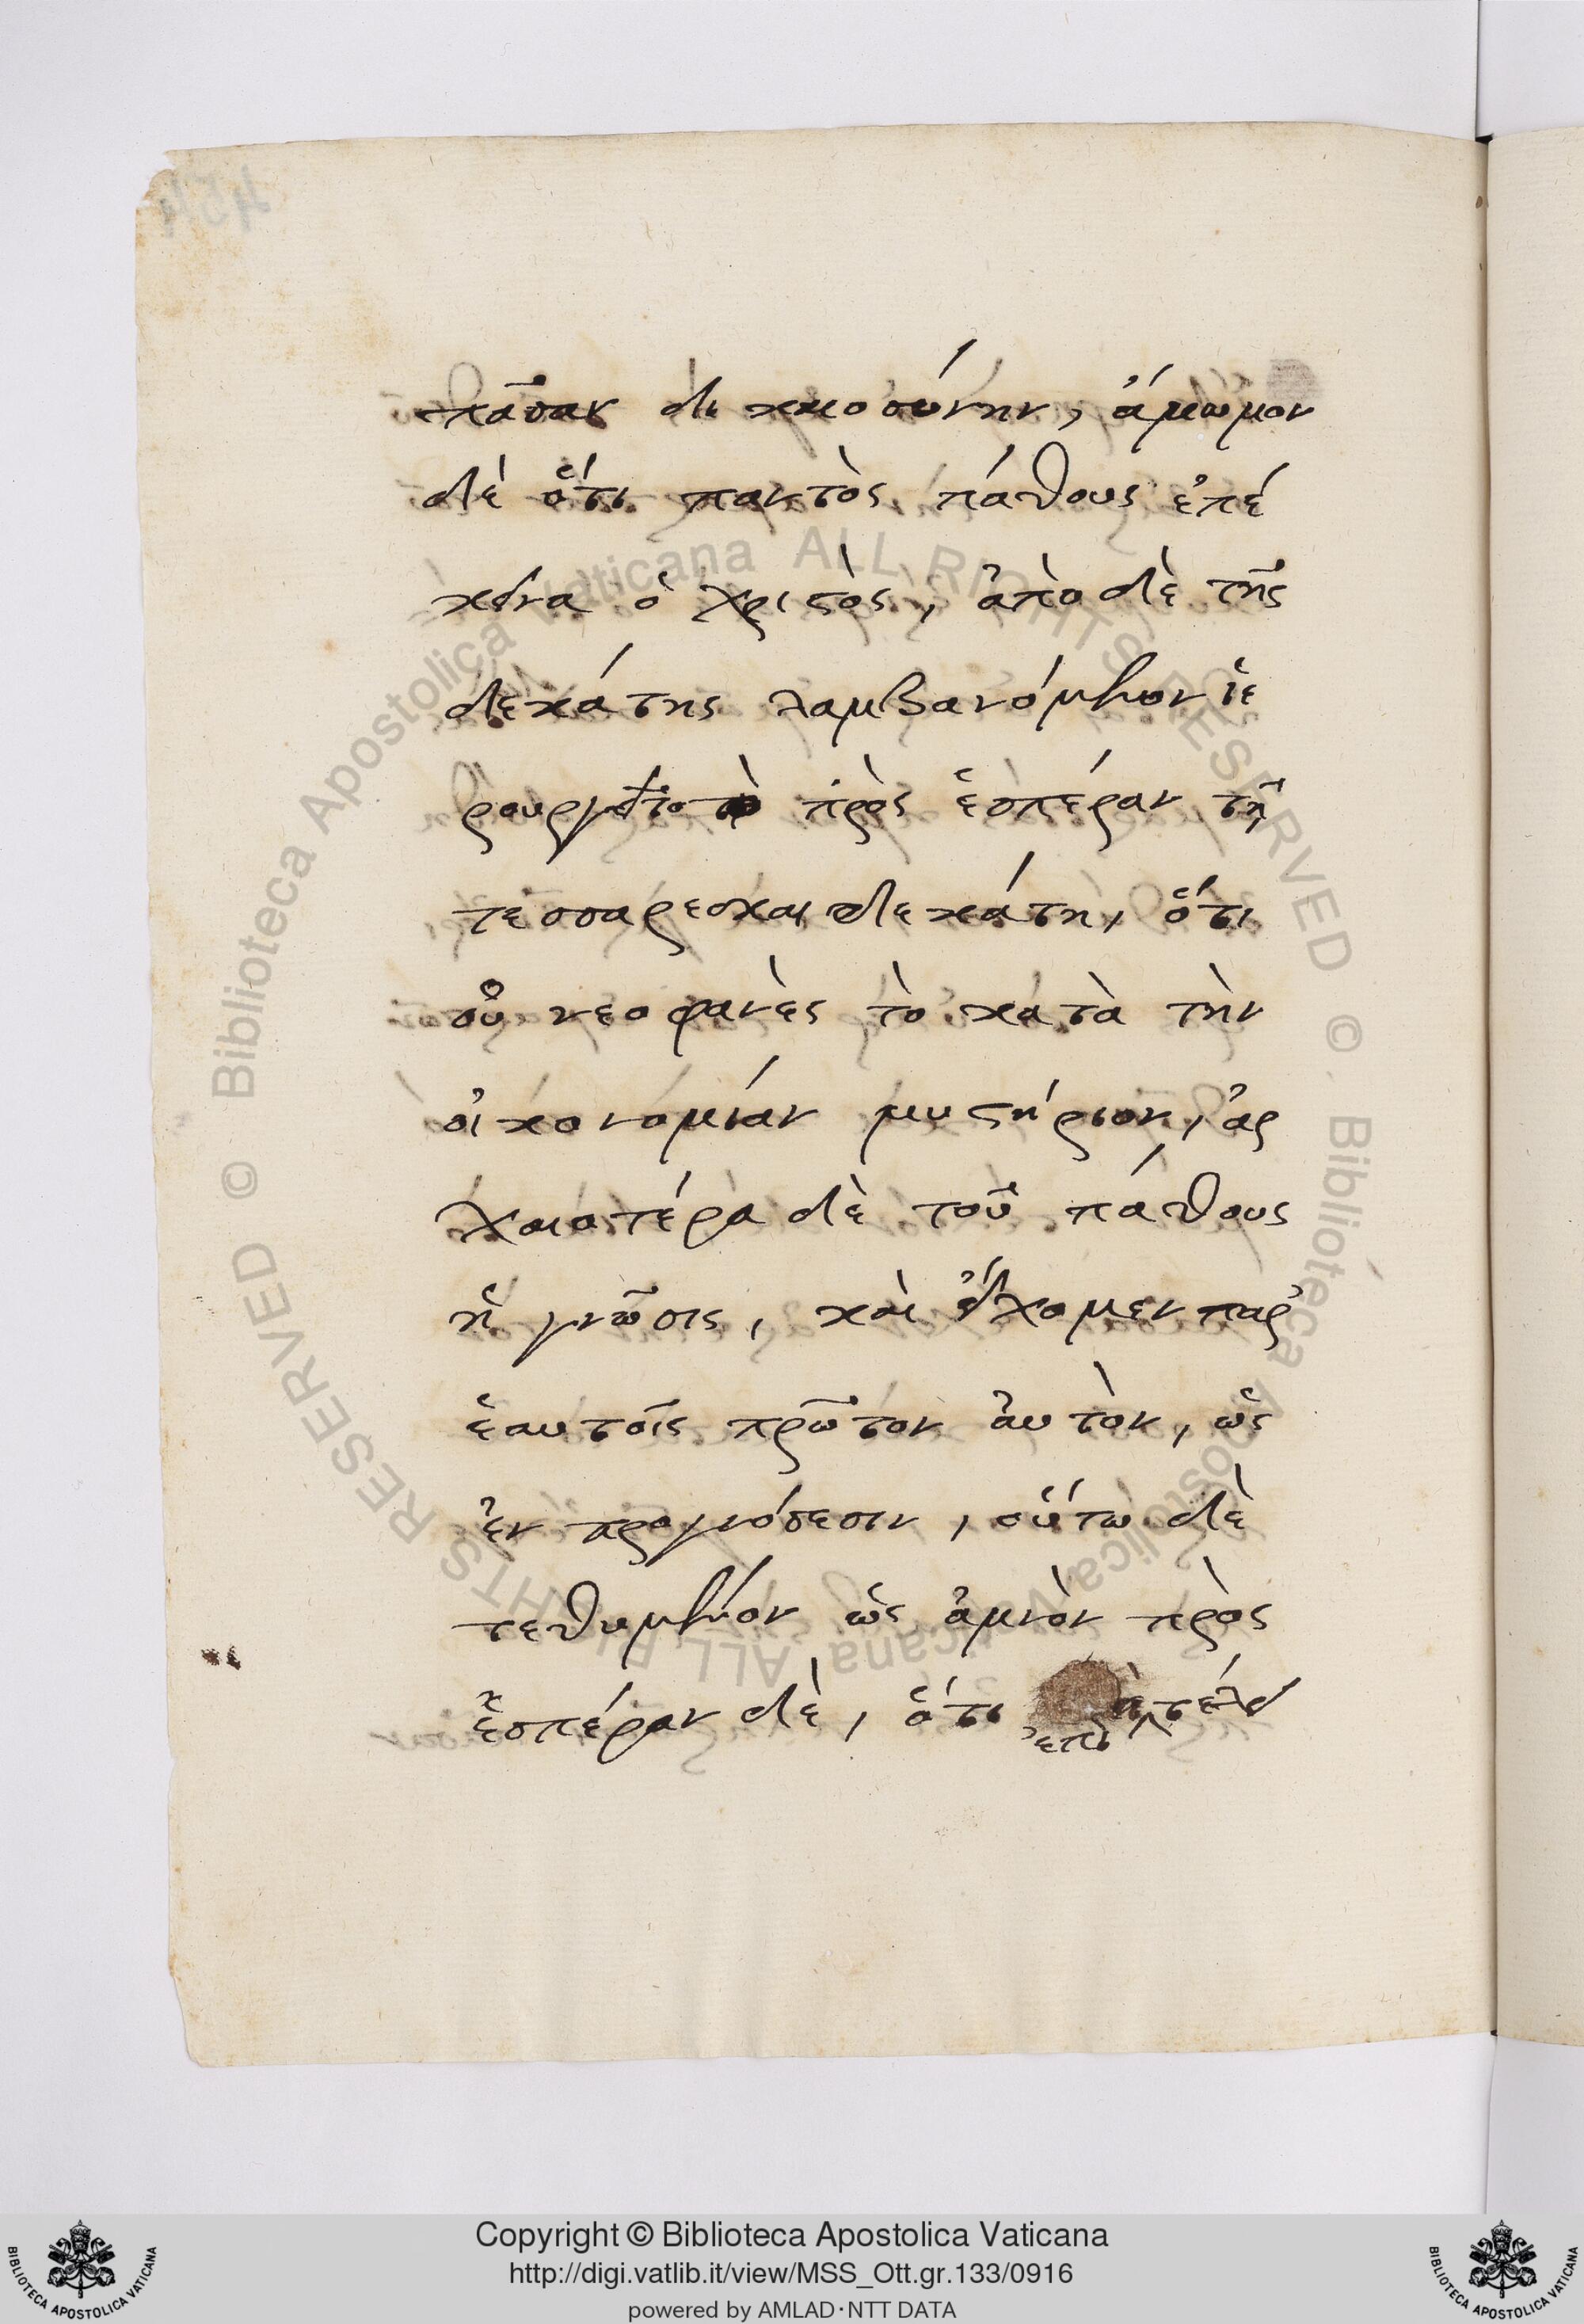 πᾶσαν δικαιοσύνην, ἄμωμον
δέ ὅτι παντὸς πάθους ἐπέ
κεινα ὁ χριστὸς, ἀπὸ δὲ τῆς
δεκάτης λαμβανόμενον ἱε
ρουργεῖτο πρὸς ἑσπέραν τῇ
τεσσαρεσκαιδεκάτη, ὅτι
οὐ νεοφανὲς τὸ κατὰ τὴν
οἰκονομίαν μυστήριον, ἀρ
χαιοτέρα δὲ τοῦ πάθους
ἡ γνῶσις, καὶ εἴχομεν παρ'
ἑαυτοῖς πρῶτον αὐτὸν, ὡς
ἐν προγνώσεσιν, οὕτω δὲ
τεθυμένον ὡς ἀμνὸν πρὸς
ἑσπέραν δὲ, ὅτι
ἐπὶ τέλει
Copyright © Biblioteca Apostolica Vaticana
http://digi.vatlib.it/view/MSS_Ott.gr.133/0916
powered by AMLAD・NTT DATA
© Biblioteca Apostolica Vaticana ALL RIGHTS RESERVED © Biblioteca Apostolica Vaticana ALL RIGHTS RESERVED
BIBLIOTECA APOSTOLICA VATICANA
BIBLIOTECA APOSTOLICA VATICANA